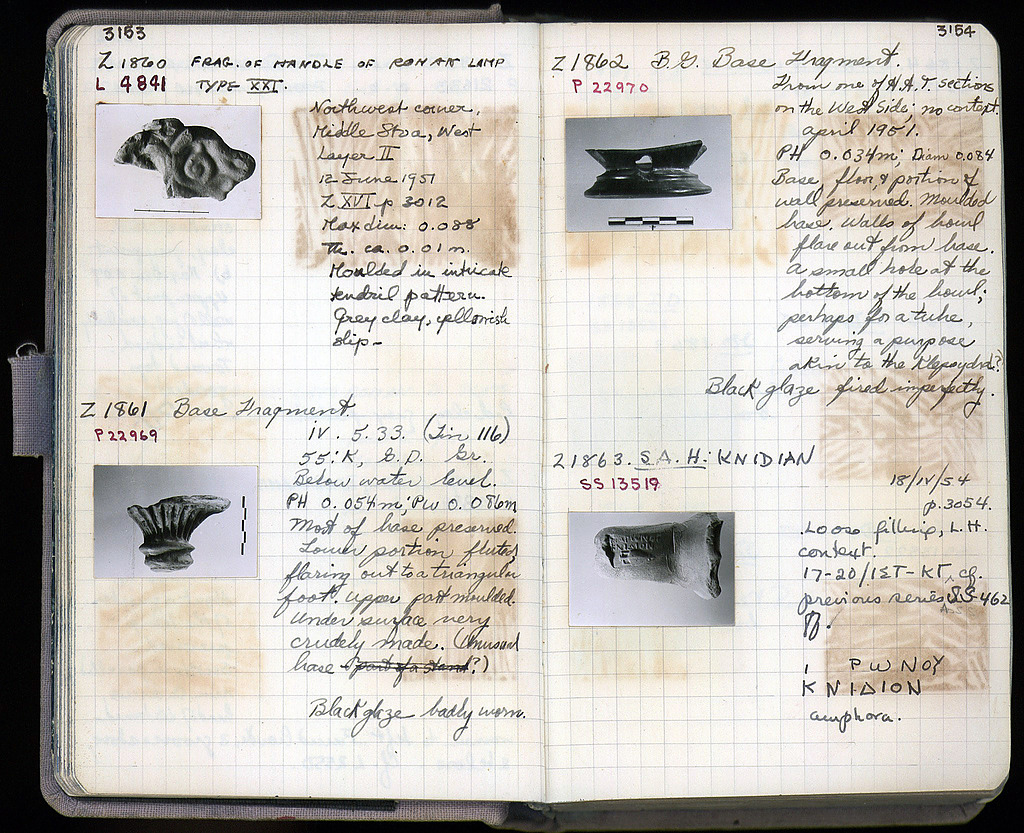 3153
Z 1860 FRAG. OF HANDLE OF ROMAN LAMP
L 4841 TYPE XXI.
Northwest corner,
Middle Stoa, West
Layer II
12 June 1951
Z XVI p 3012
Max dim: 0.088
Th. ca. 0.01 m.
Moulded in intricate
tendril pattern.
Grey clay, yellowish
slip-
Z 1861 Base Fragment
P 22969
IV. 5. 33. (Tin 116)
55: K, E.D. Gr.
Below water level.
PH 0.054m; PW 0.086m
Most of base preserved.
Lower portion fluted,
flaring out to a triangular
foot. Upper part moulded.
Under surface very
crudely made. (Unusual
base part of a stand?)
Black glaze badly worn.
3154
Z 1862 B.G. Base Fragment.
P 22970
From one of H.A.T. sections
on the West Side; no context.
april 1951.
PH 0.034m; Diam 0.084
Base, floor, & portion of
wall preserved. Moulded
base. Walls of bowl
flare out from base.
A small hole at the
bottom of the bowl;
perhaps for a tube,
serving a purpose
akin to the Klepsydra?
Black glaze fired imperfectly.
Z 1863. S.A.H: KNIDIAN
SS 13519
18/IV/54
p. 3054.
Loose filling, L.H.
context.
17-20/ΙΣΤ-ΚΓ, cf.
previous series SS-462
ΡѠΝΟΥ
ΚΝΙΔΙΟΝ
amphora.